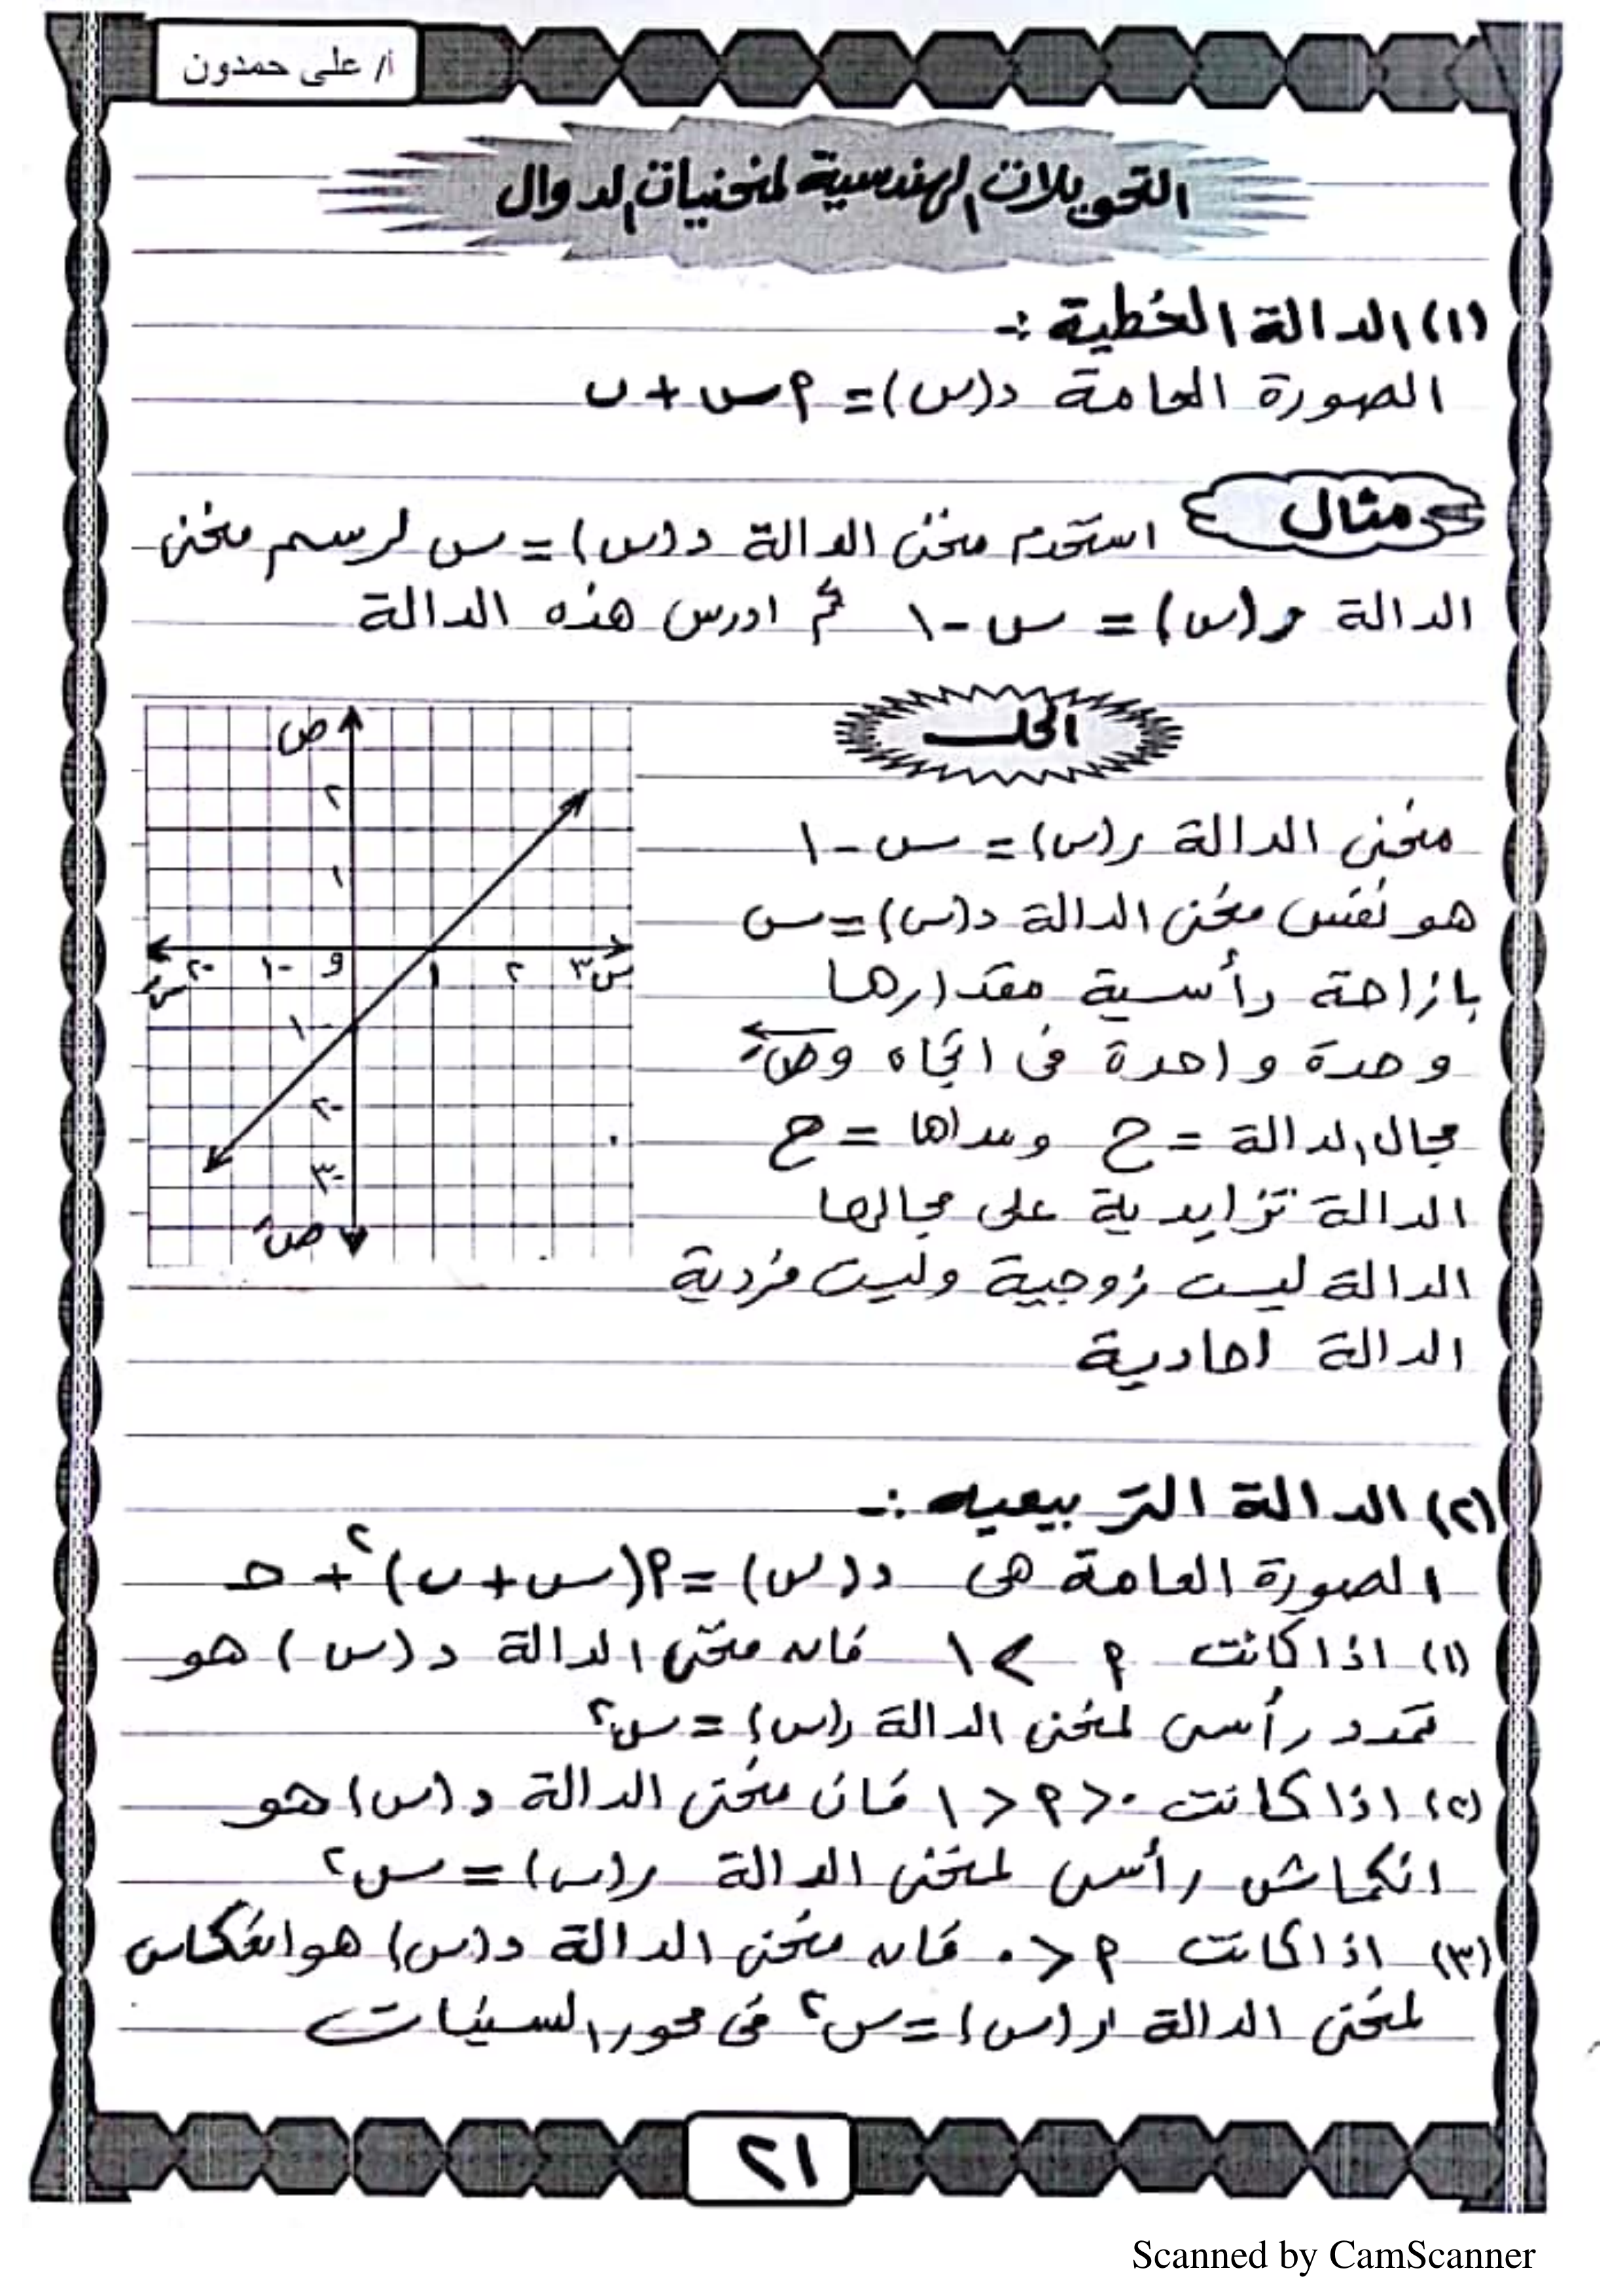 أ/ على حمدون
التحويلات الهندسية لمنحنيات الدوال
(١) الدالة الخطية :-
الصورة العامة د(س) = ٩س + ب
مثال
استخدم منحنى الدالة د(س) = س لرسم منحنى
الدالة ر(س) = س - ١ ثم ادرس هذه الدالة
الحل
منحنى الدالة ر(س) = س - ١
هو نفس منحنى الدالة د(س) = س
بازاحة رأسية مقدارها
وحدة واحدة فى اتجاه وصَ
مجال الدالة = ح ومداها = ح
الدالة تزايدية على مجالها
الدالة ليست زوجية وليست فردية
الدالة احادية
ص
٢
١
سَ -٢ -١ و ١ ٢ ٣ س
-١
-٢
-٣
صَ
(٢) الدالة التربيعيه :-
الصورة العامة هى د(س) = ٩(س + ب)٢ + حـ
(١) اذا كانت ٩ > ١ فانه منحنى الدالة د(س) هو
تمدد رأسى لمنحنى الدالة ر(س) = س٢
(٢) اذا كانت ٠ < ٩ < ١ فان منحنى الدالة د(س) هو
انكماش رأسى لمنحنى الدالة ر(س) = س٢
(٣) اذا كانت ٩ < ٠ فانه منحنى الدالة د(س) هو انعكاس
لمنحنى الدالة ر(س) = س٢ فى محور السينات
٢١
Scanned by CamScanner